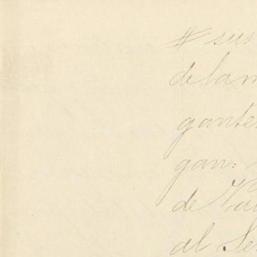 # sus
de la m
gante
gan:
de
al Se